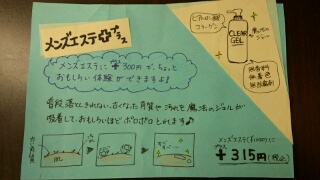 メンズエステ プラス
メンズエステに ＋300円で、ちょっと
おもしろい 体験ができますよ!
普段落としきれない、古くなった角質や汚れを魔法のジェルが
吸着して、おもしろいほどポロポロとれます♪
ヒアルロン酸
コラーゲン
CLEAR
GEL
無香料
無着色
メンズエステ
＋315円(税込)